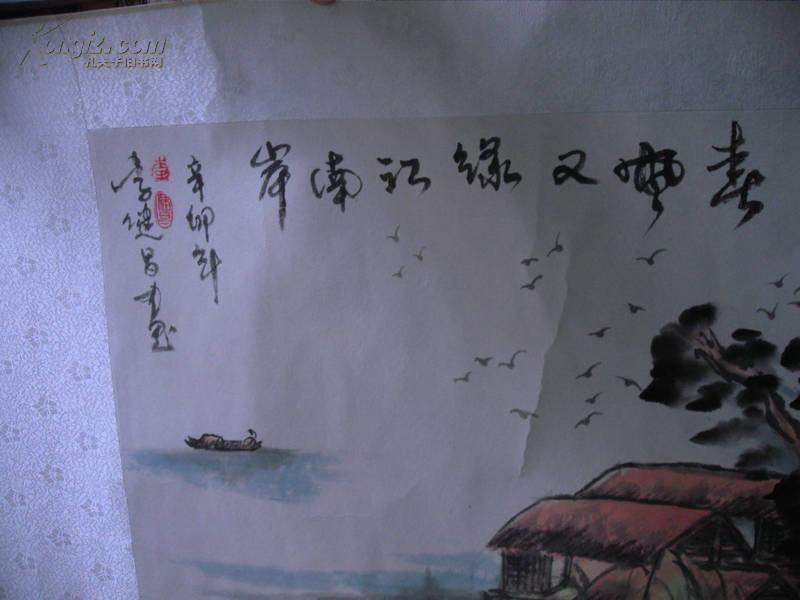 春風又绿江南岸
辛卯年
李健昌画
Kongfz.com
孔夫子旧书网